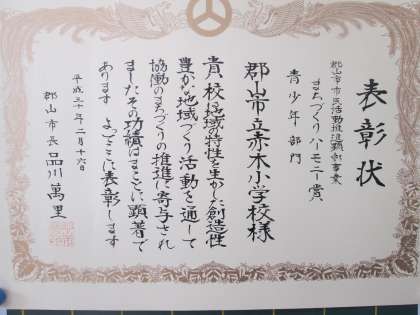 表彰状
郡山市市民活動推進顕彰事業
まちづくりハーモニー賞
青少年部門
郡山市立赤木小学校様
貴校は地域の特性を生かした創造性
豊かな地域づくり活動を通して
協働のまちづくりの推進に寄与され
ましたその功績はまことに顕著で
あります よってここに表彰します
平成三十年二月十六日
郡山市長 品川萬里